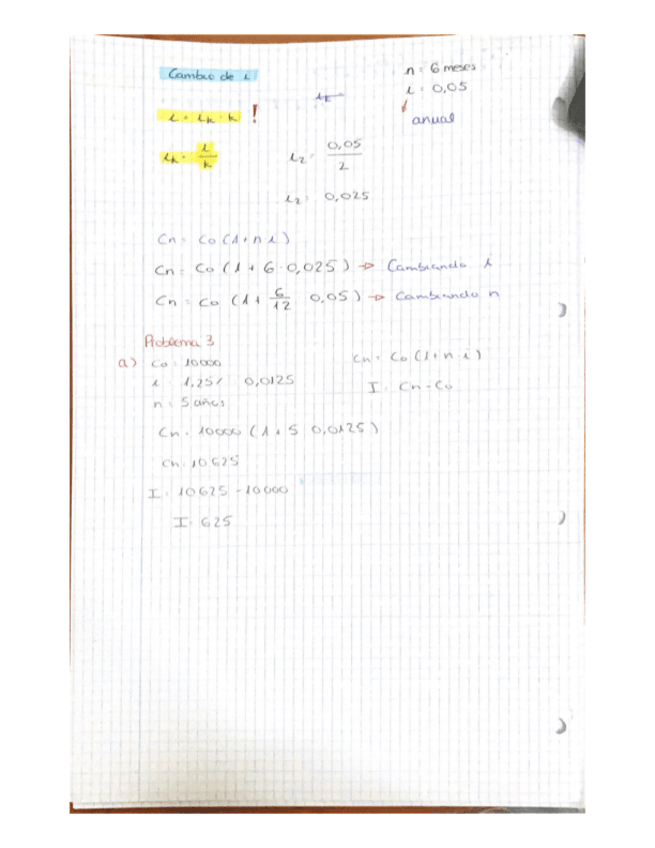 Cambio de i
n = 6 meses
i = 0,05
anual
i = ik · k !
ik
ik = i/k
i2 = 0,05/2
i2 = 0,025
Cn = Co (1 + n i)
Cn = Co (1 + 6 · 0,025) → Cambiando i
Cn = Co (1 + 6/12 0,05) → Cambiando n
Problema 3
a) Co = 10000
Cn = Co (1 + n · i)
i = 1,25% 0,0125
I = Cn - Co
n = 5 años
Cn = 10000 (1 + 5 0,0125)
Cn = 10625
I = 10625 - 10000
I = 625